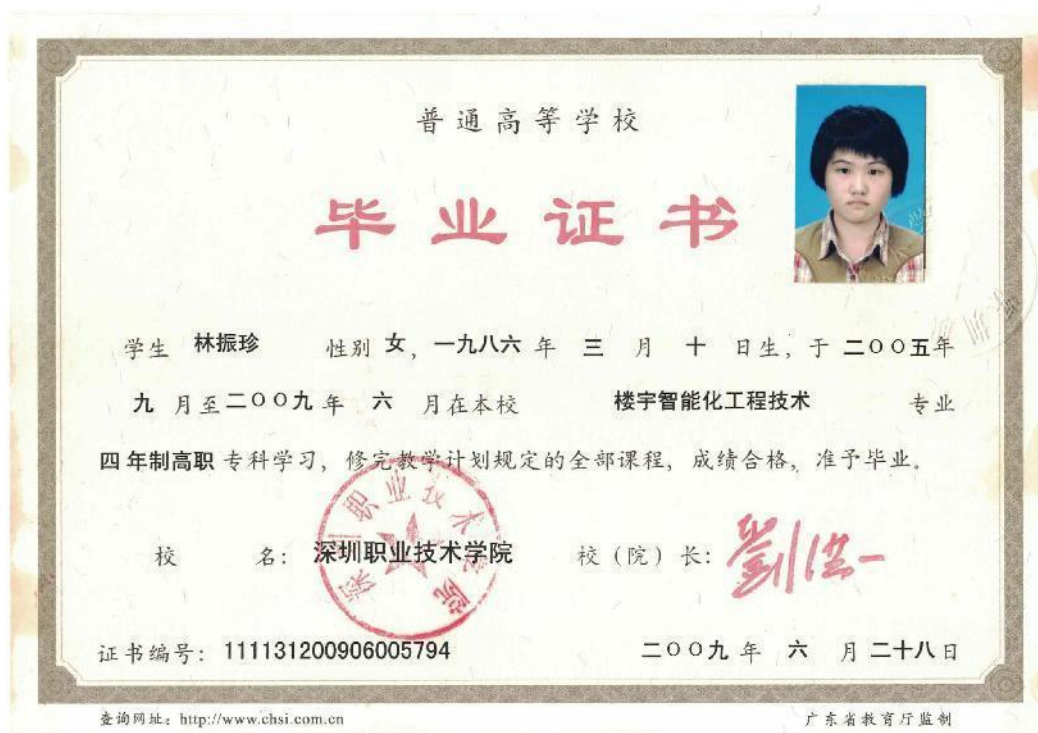 普通高等学校
毕业证书
学生 林振珍 性别 女，一九八六 年 三 月 十 日生，于 二〇〇五年
九 月至二〇〇九 年 六 月在本校 楼宇智能化工程技术 专业
四年制高职 专科学习，修完教学计划规定的全部课程，成绩合格，准予毕业。
校 名：深圳职业技术学院 校（院）长：劉洪一
深圳职业技术学院
证书编号：111131200906005794 二〇〇九 年 六 月 二十八日
查询网址：http://www.chsi.com.cn 广东省教育厅监制